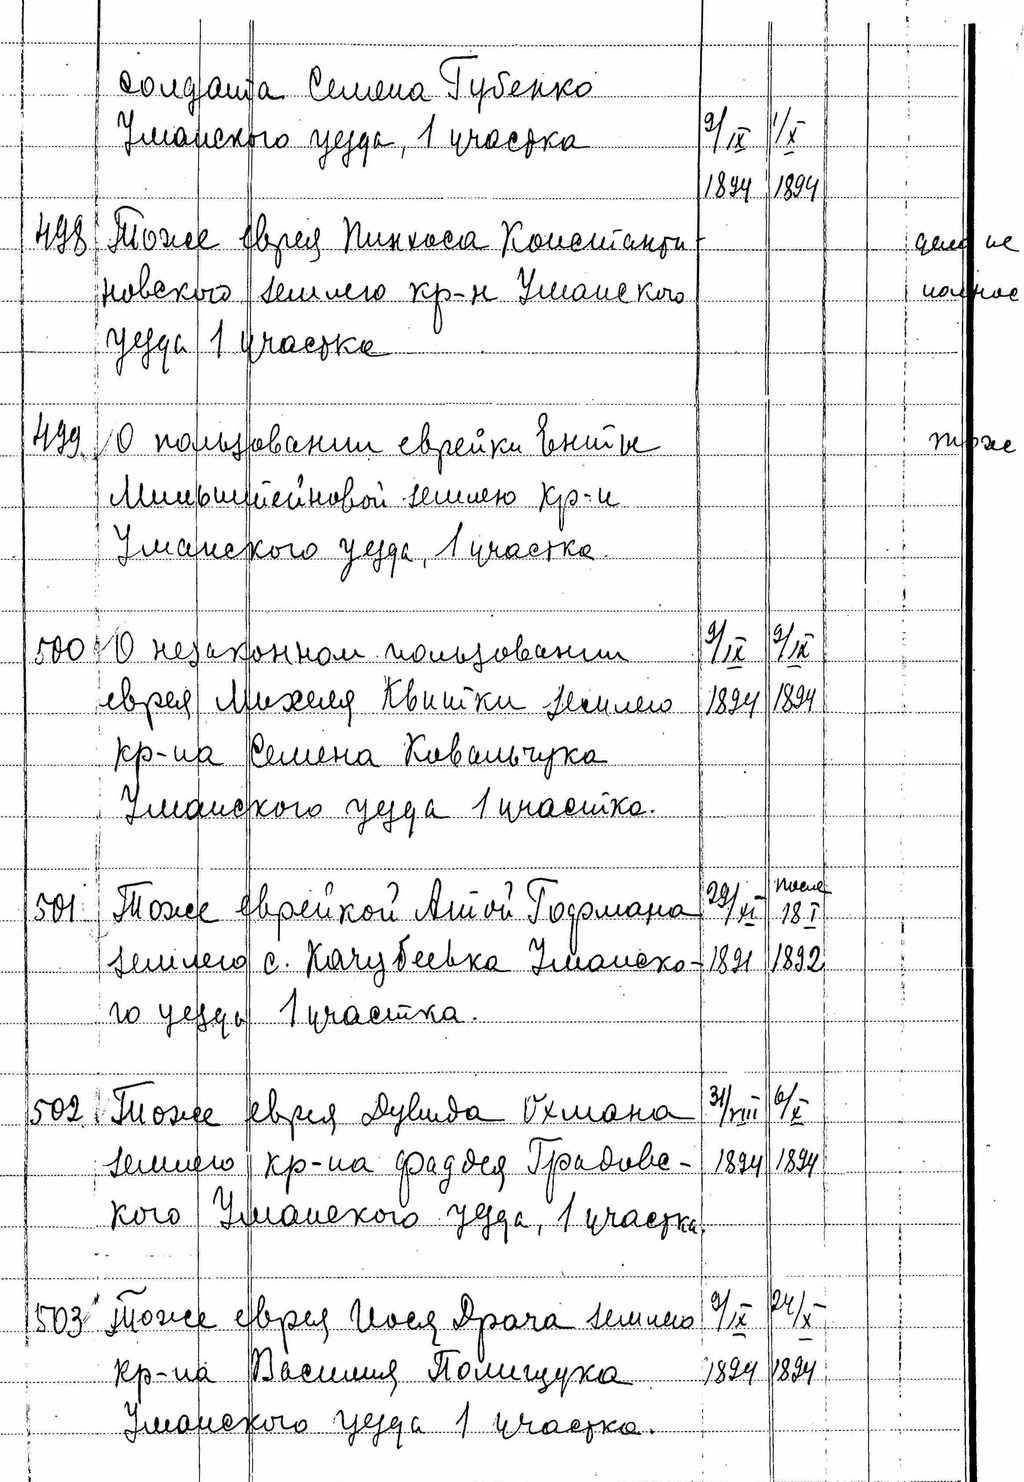 солдата Семена Губенко
Уманского уезда, 1 участка 9/IX 1/X
1894 1894
498 Тоже еврея Пинхоса Константи- дело не
новского землею кр-н Уманского полное
уезда 1 участка
499 О пользовании еврейки Енты тоже
Мильштейновой землею кр-н
Уманского уезда, 1 участка.
500 О незаконном пользовании 9/IX 9/IX
еврея Михеля Квитки землею 1894 1894
кр-на Семена Ковальчука
Уманского уезда 1 участка.
501 Тоже еврейкой Апой Гофмана 29/XI после 18 I
землею с. Качубеевка Уманско- 1891 1892
го уезда 1 участка.
502 Тоже еврея Дувида Охмана 31/VIII 6/X
землею кр-на Фаддея Градовс- 1894 1894
кого Уманского уезда, 1 участка.
503 Тоже еврея Иося Драча землею 9/IX 24/X
кр-на Василия Полищука 1894 1894
Уманского уезда 1 участка.